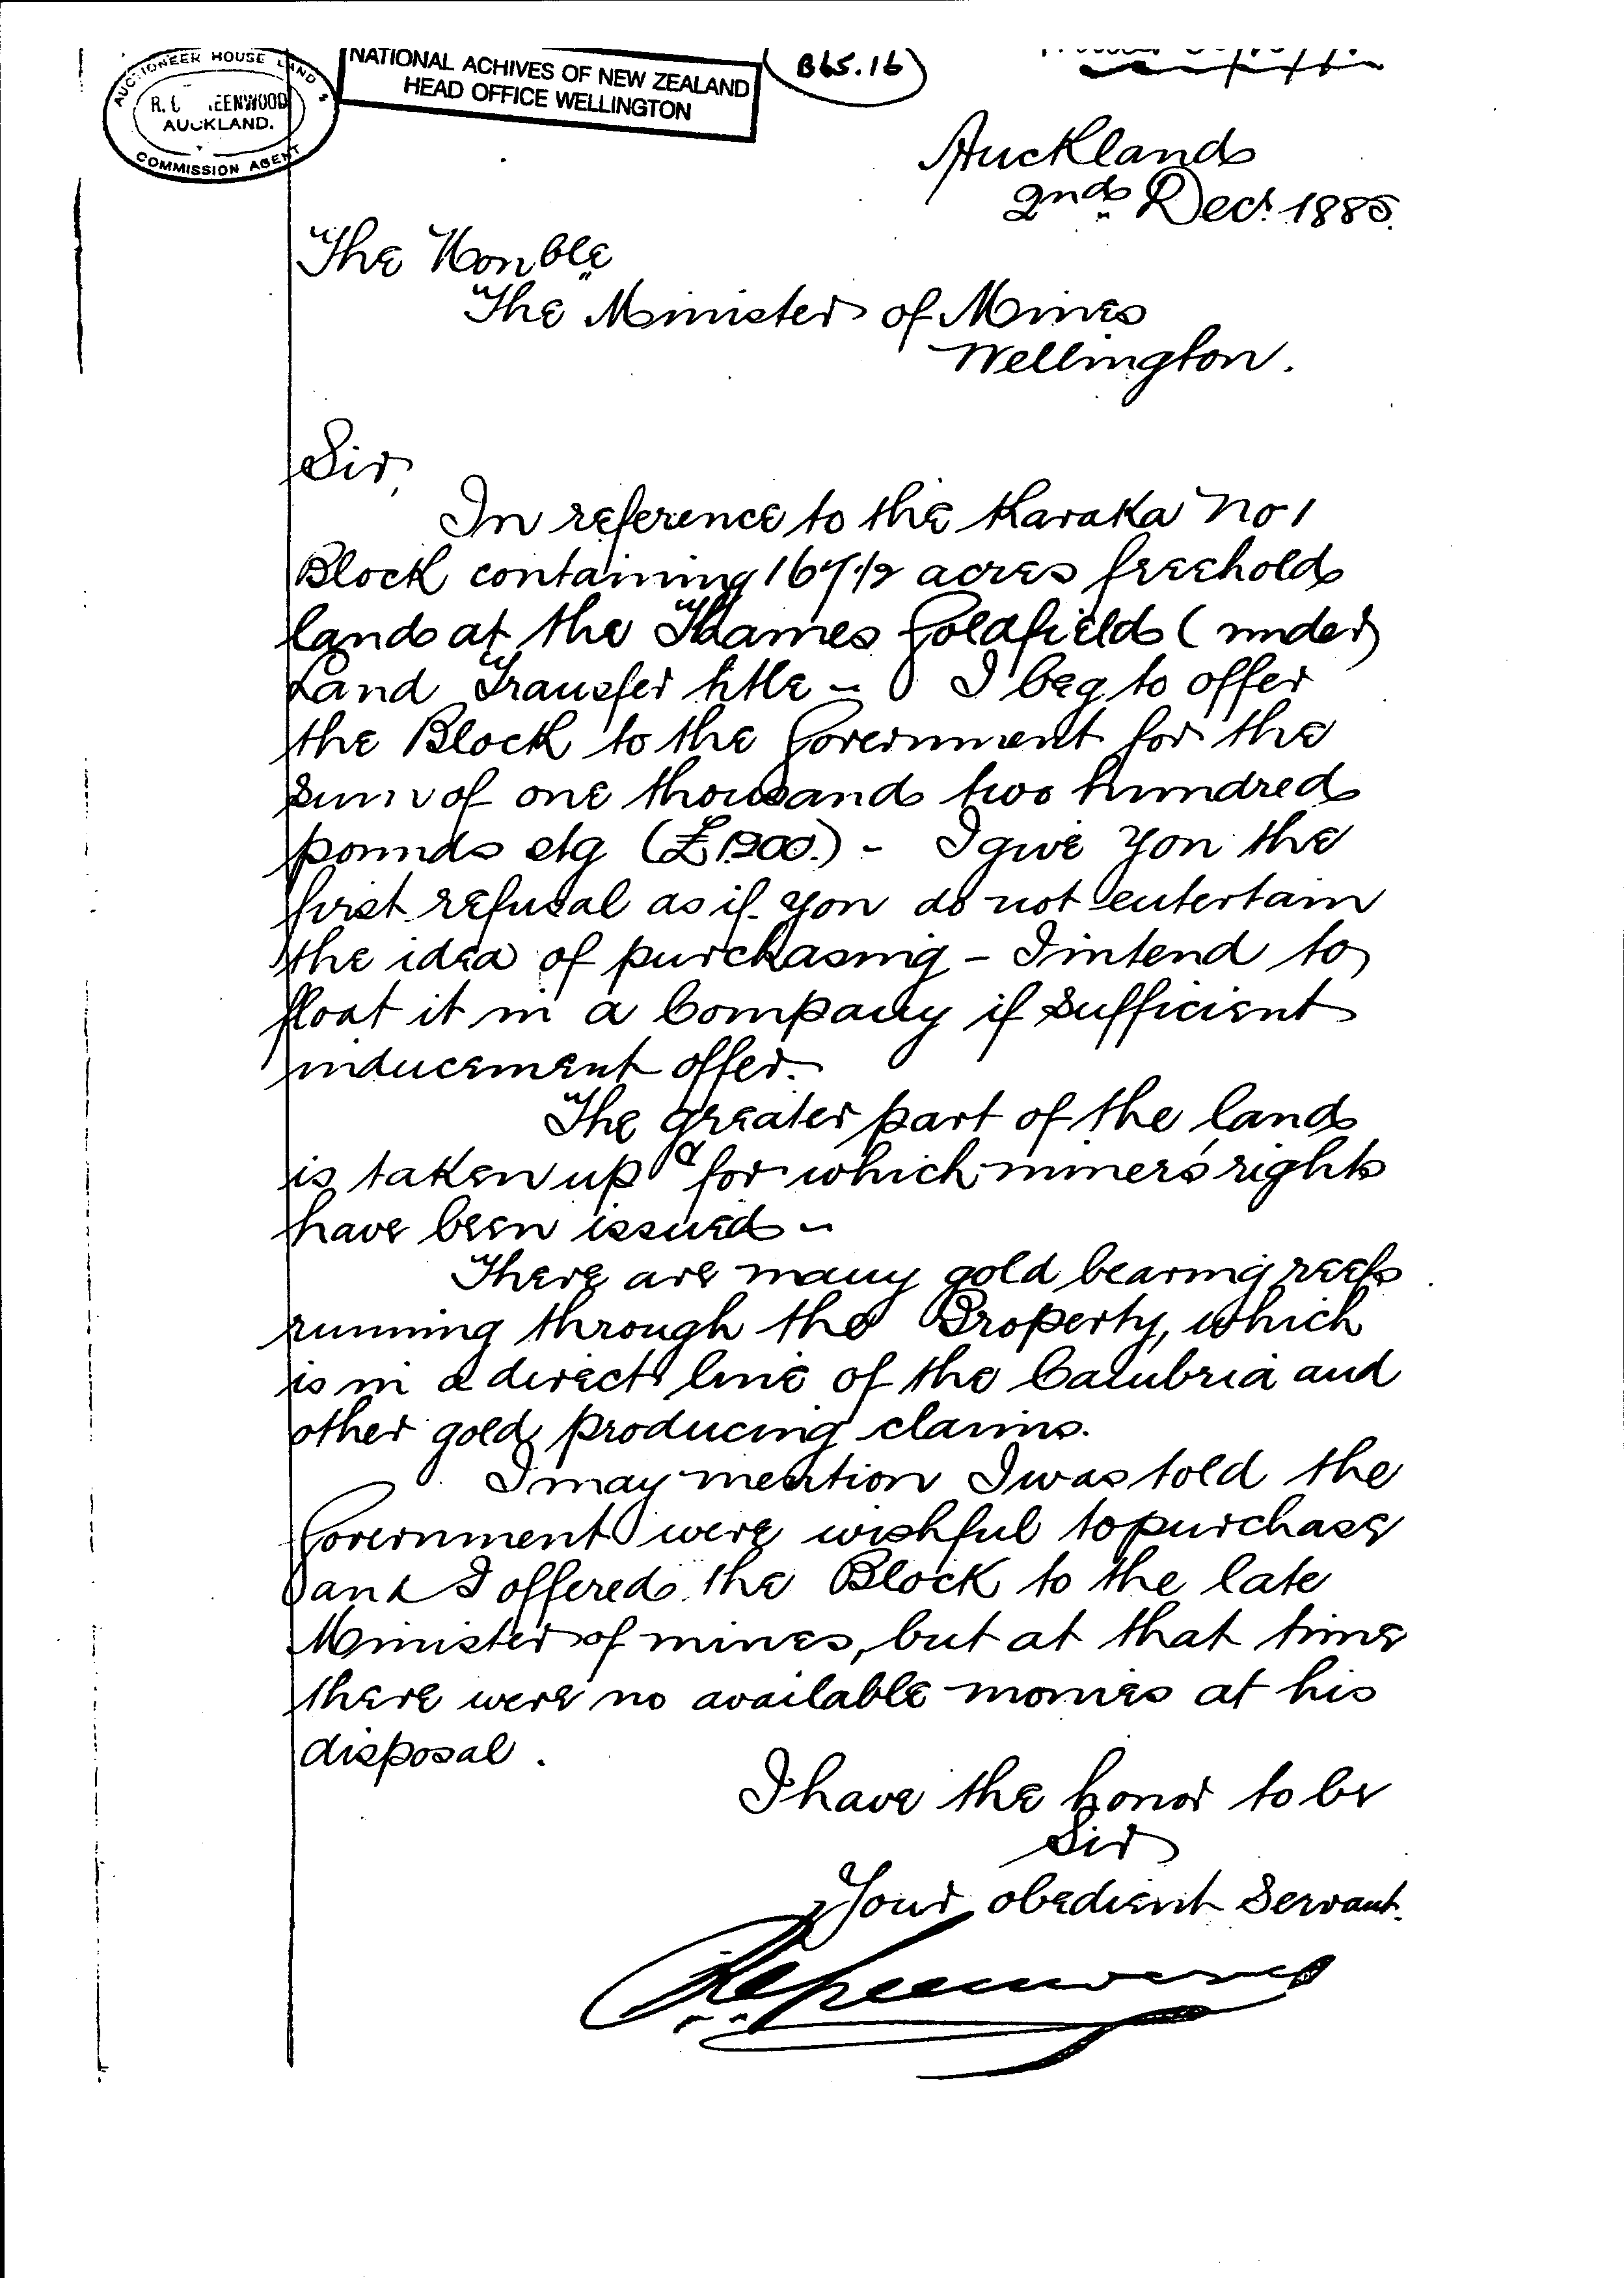 AUCTIONEER HOUSE LAND &
R. C. GREENWOOD
AUCKLAND.
COMMISSION AGENT
NATIONAL ACHIVES OF NEW ZEALAND
HEAD OFFICE WELLINGTON
B65.16
Auckland
2nd Decr 1885.
The Honble
The Minister of Mines
Wellington.
Sir,
In reference to the Karaka No 1
Block containing 167 1/2 acres freehold
land at the Thames Goldfield (under
Land Transfer title - I beg to offer
the Block to the Government for the
Sum of one thousand two hundred
pounds stg (£1200.) - I give you the
first refusal as if you do not entertain
the idea of purchasing - I intend to
float it in a Company if sufficient
inducement offer.
The greater part of the land
is taken up & for which miner's rights
have been issued -
There are many gold bearing reefs
running through the Property, which
is in a direct line of the Cambria and
other gold producing claims.
I may mention I was told the
Government were wishful to purchase
and I offered the Block to the late
Minister of mines, but at that time
there were no available monies at his
disposal.
I have the honor to be
Sir
Your obedient Servant.
RCGreenwood